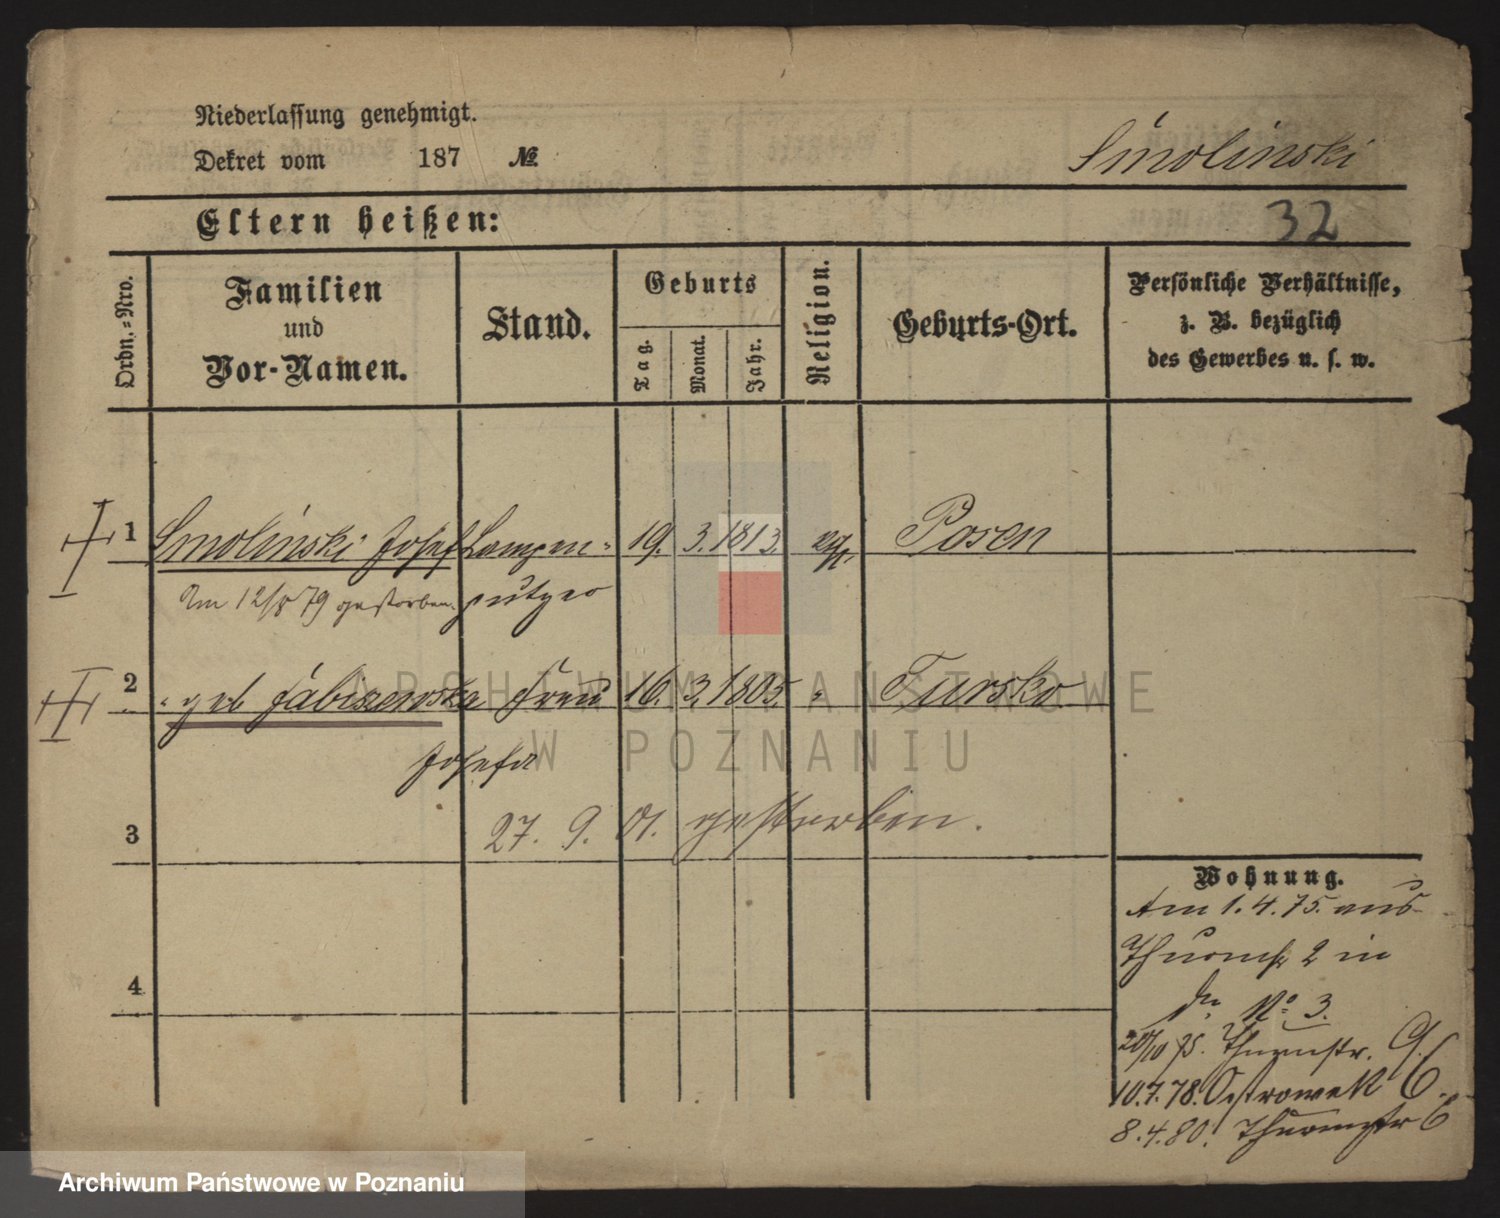 Niederlassung genehmigt.
Dekret vom 187 №
Smoliński
Eltern heißen:
32
Ordn.=Nro.
Familien
und
Vor-Namen.
Stand.
Geburts
Tag.
Monat.
Jahr.
Religion.
Geburts-Ort.
Persönliche Verhältnisse,
z. B. bezüglich
des Gewerbes u. s. w.
1 Smoliński Josef Lampen- 19. 3. 1813. Posen
Am 12/8 79 gestorben. putzer
2 " geb Fabiszewska Frau 16. 3. 1805. " Tursko
Josefa
ARCHIWUM PAŃSTWOWE
W POZNANIU
3 27. 9. 01. gestorben.
Wohnung.
Am 1.4.75. aus
Thurmstr 2 in
No 3.
4
20/10 75. Thurmstr. 9.
10.7.78. Ostrowek 6.
8.4.80. Thurmstr 6
Archiwum Państwowe w Poznaniu